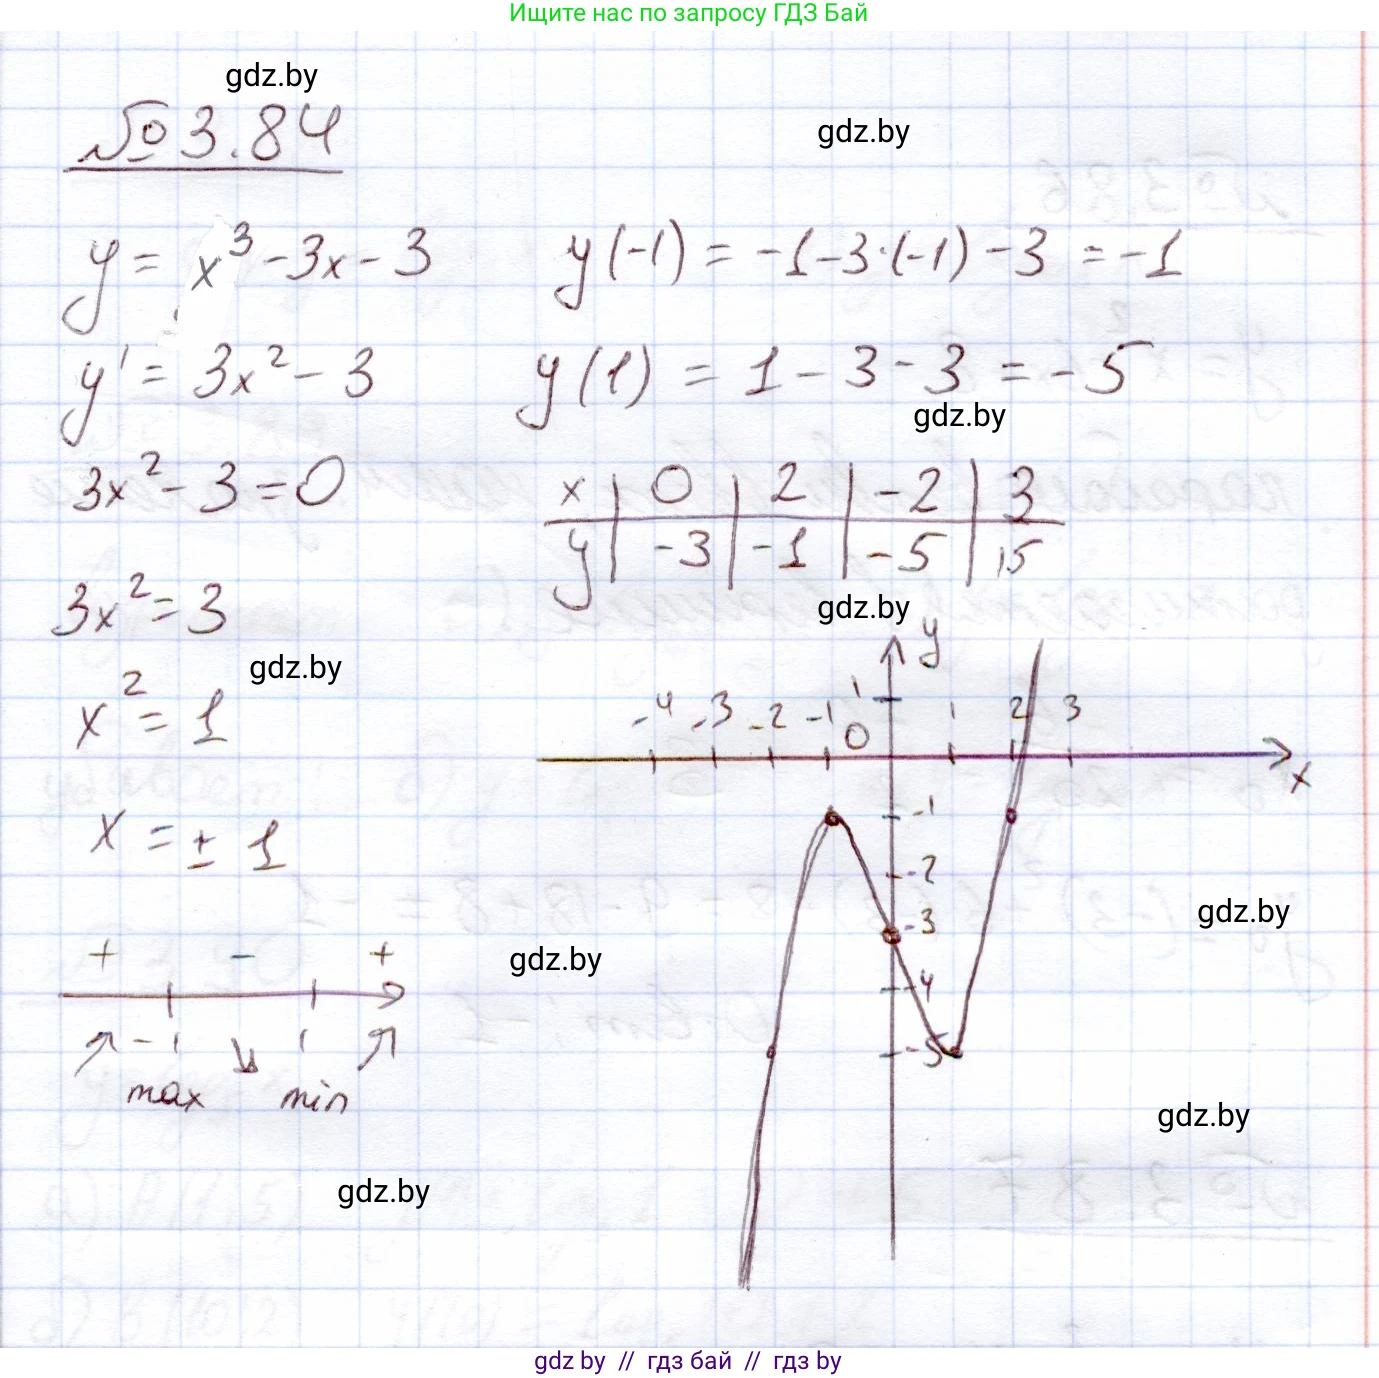 Ищите нас по запросу ГДЗ Бай
gdz.by
№ 3.84
gdz.by
y = x³ - 3x - 3
y(-1) = -1 - 3·(-1) - 3 = -1
y' = 3x² - 3
y(1) = 1 - 3 - 3 = -5
gdz.by
3x² - 3 = 0
x | 0 | 2 | -2 | 3
y | -3 | -1 | -5 | 15
3x² = 3
gdz.by
gdz.by
x² = 1
y
1
-4 -3 -2 -1 0 1 2 3
x
x = ± 1
-1
-2
-3
-4
-5
gdz.by
gdz.by
+ - +
-1 1
max min
gdz.by
gdz.by
gdz by // гдз бай // гдз by